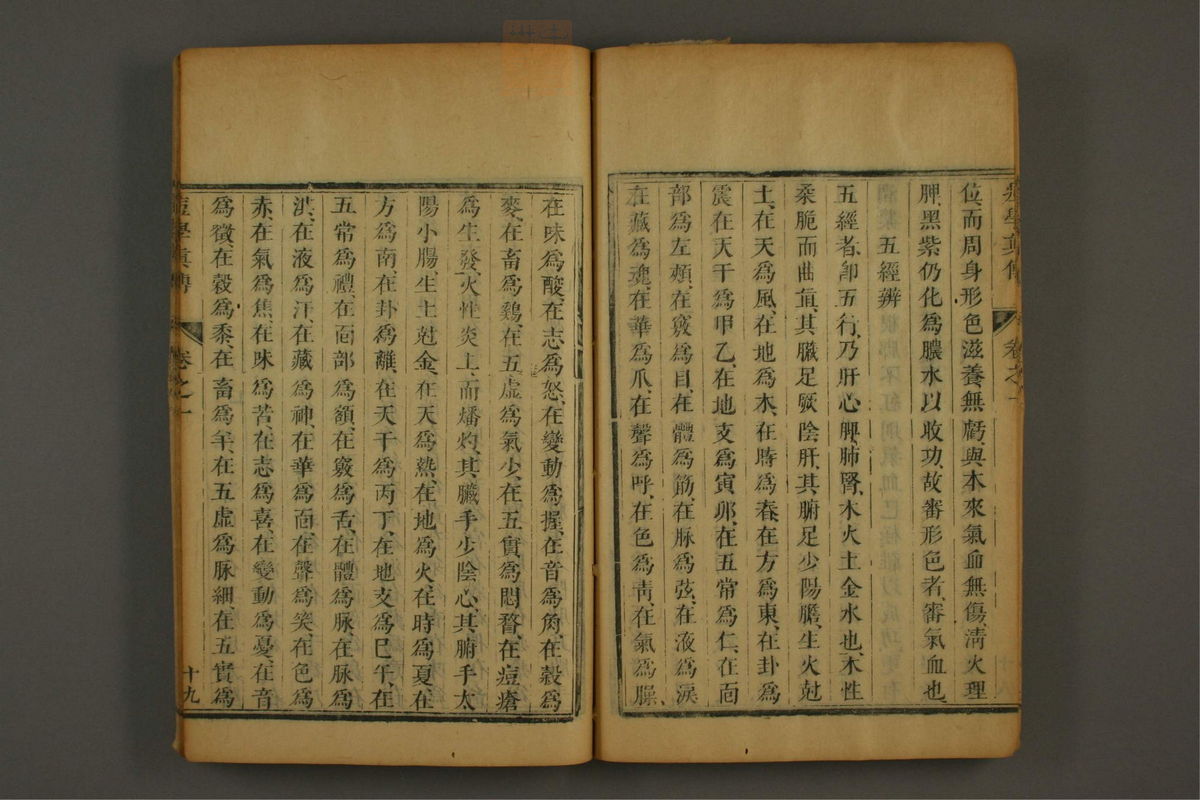 位、而周身形色滋養無虧、與本來氣血無傷、淸火理
脾、黑紫仍化爲膿水以收功、故審形色者、審氣血也、
五經辨
五經者、卽五行、乃肝心脾肺腎、木火土金水也、木性
柔脆而曲直、其臟足厥陰肝、其腑足少陽膽、生火尅
土、在天爲風、在地爲木、在時爲春、在方爲東、在卦爲
震、在天干爲甲乙、在地支爲寅卯、在五常爲仁、在面
部爲左頰、在竅爲目、在體爲筋、在脉爲弦、在液爲淚
在藏爲魂、在華爲爪、在聲爲呼、在色爲靑、在氣爲臊、
在味爲酸、在志爲怒、在變動爲握、在音爲角、在穀爲
麥、在畜爲鷄、在五虛爲氣少、在五實爲悶瞀、在痘瘡
爲生發、火性炎上、而燔灼、其臟手少陰心、其腑手太
陽小腸、生土尅金、在天爲熱、在地爲火、在時爲夏、在
方爲南、在卦爲離、在天干爲丙丁、在地支爲巳午、在
五常爲禮、在面部爲額、在竅爲舌、在體爲脉、在脉爲
洪、在液爲汗、在藏爲神、在華爲面、在聲爲笑、在色爲
赤、在氣爲焦、在味爲苦、在志爲喜、在變動爲憂、在音
爲徵、在穀爲黍、在畜爲羊、在五虛爲脉細、在五實爲
痘學眞傳 卷之一 十九